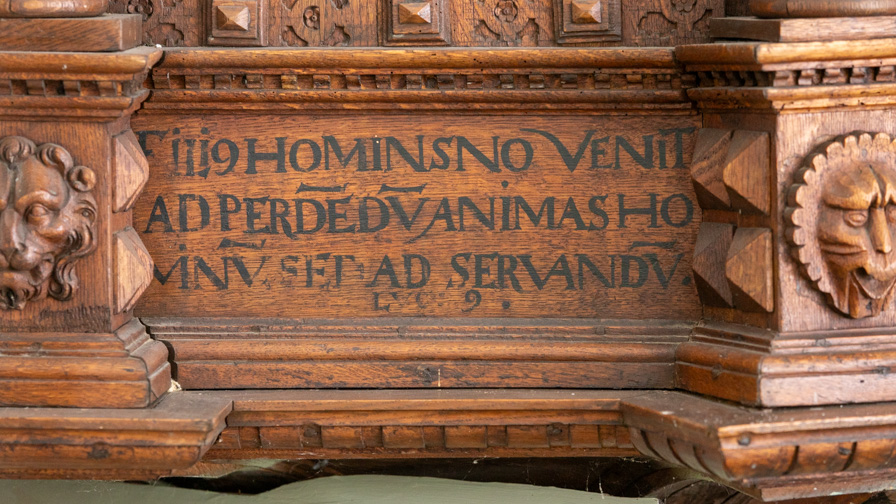 Filij9 HOMINS NO VENIT
AD PERDĒDV̄ ANIMAS HO
MINV̄. SET. AD SERVANDV̄.
LVC. 9.